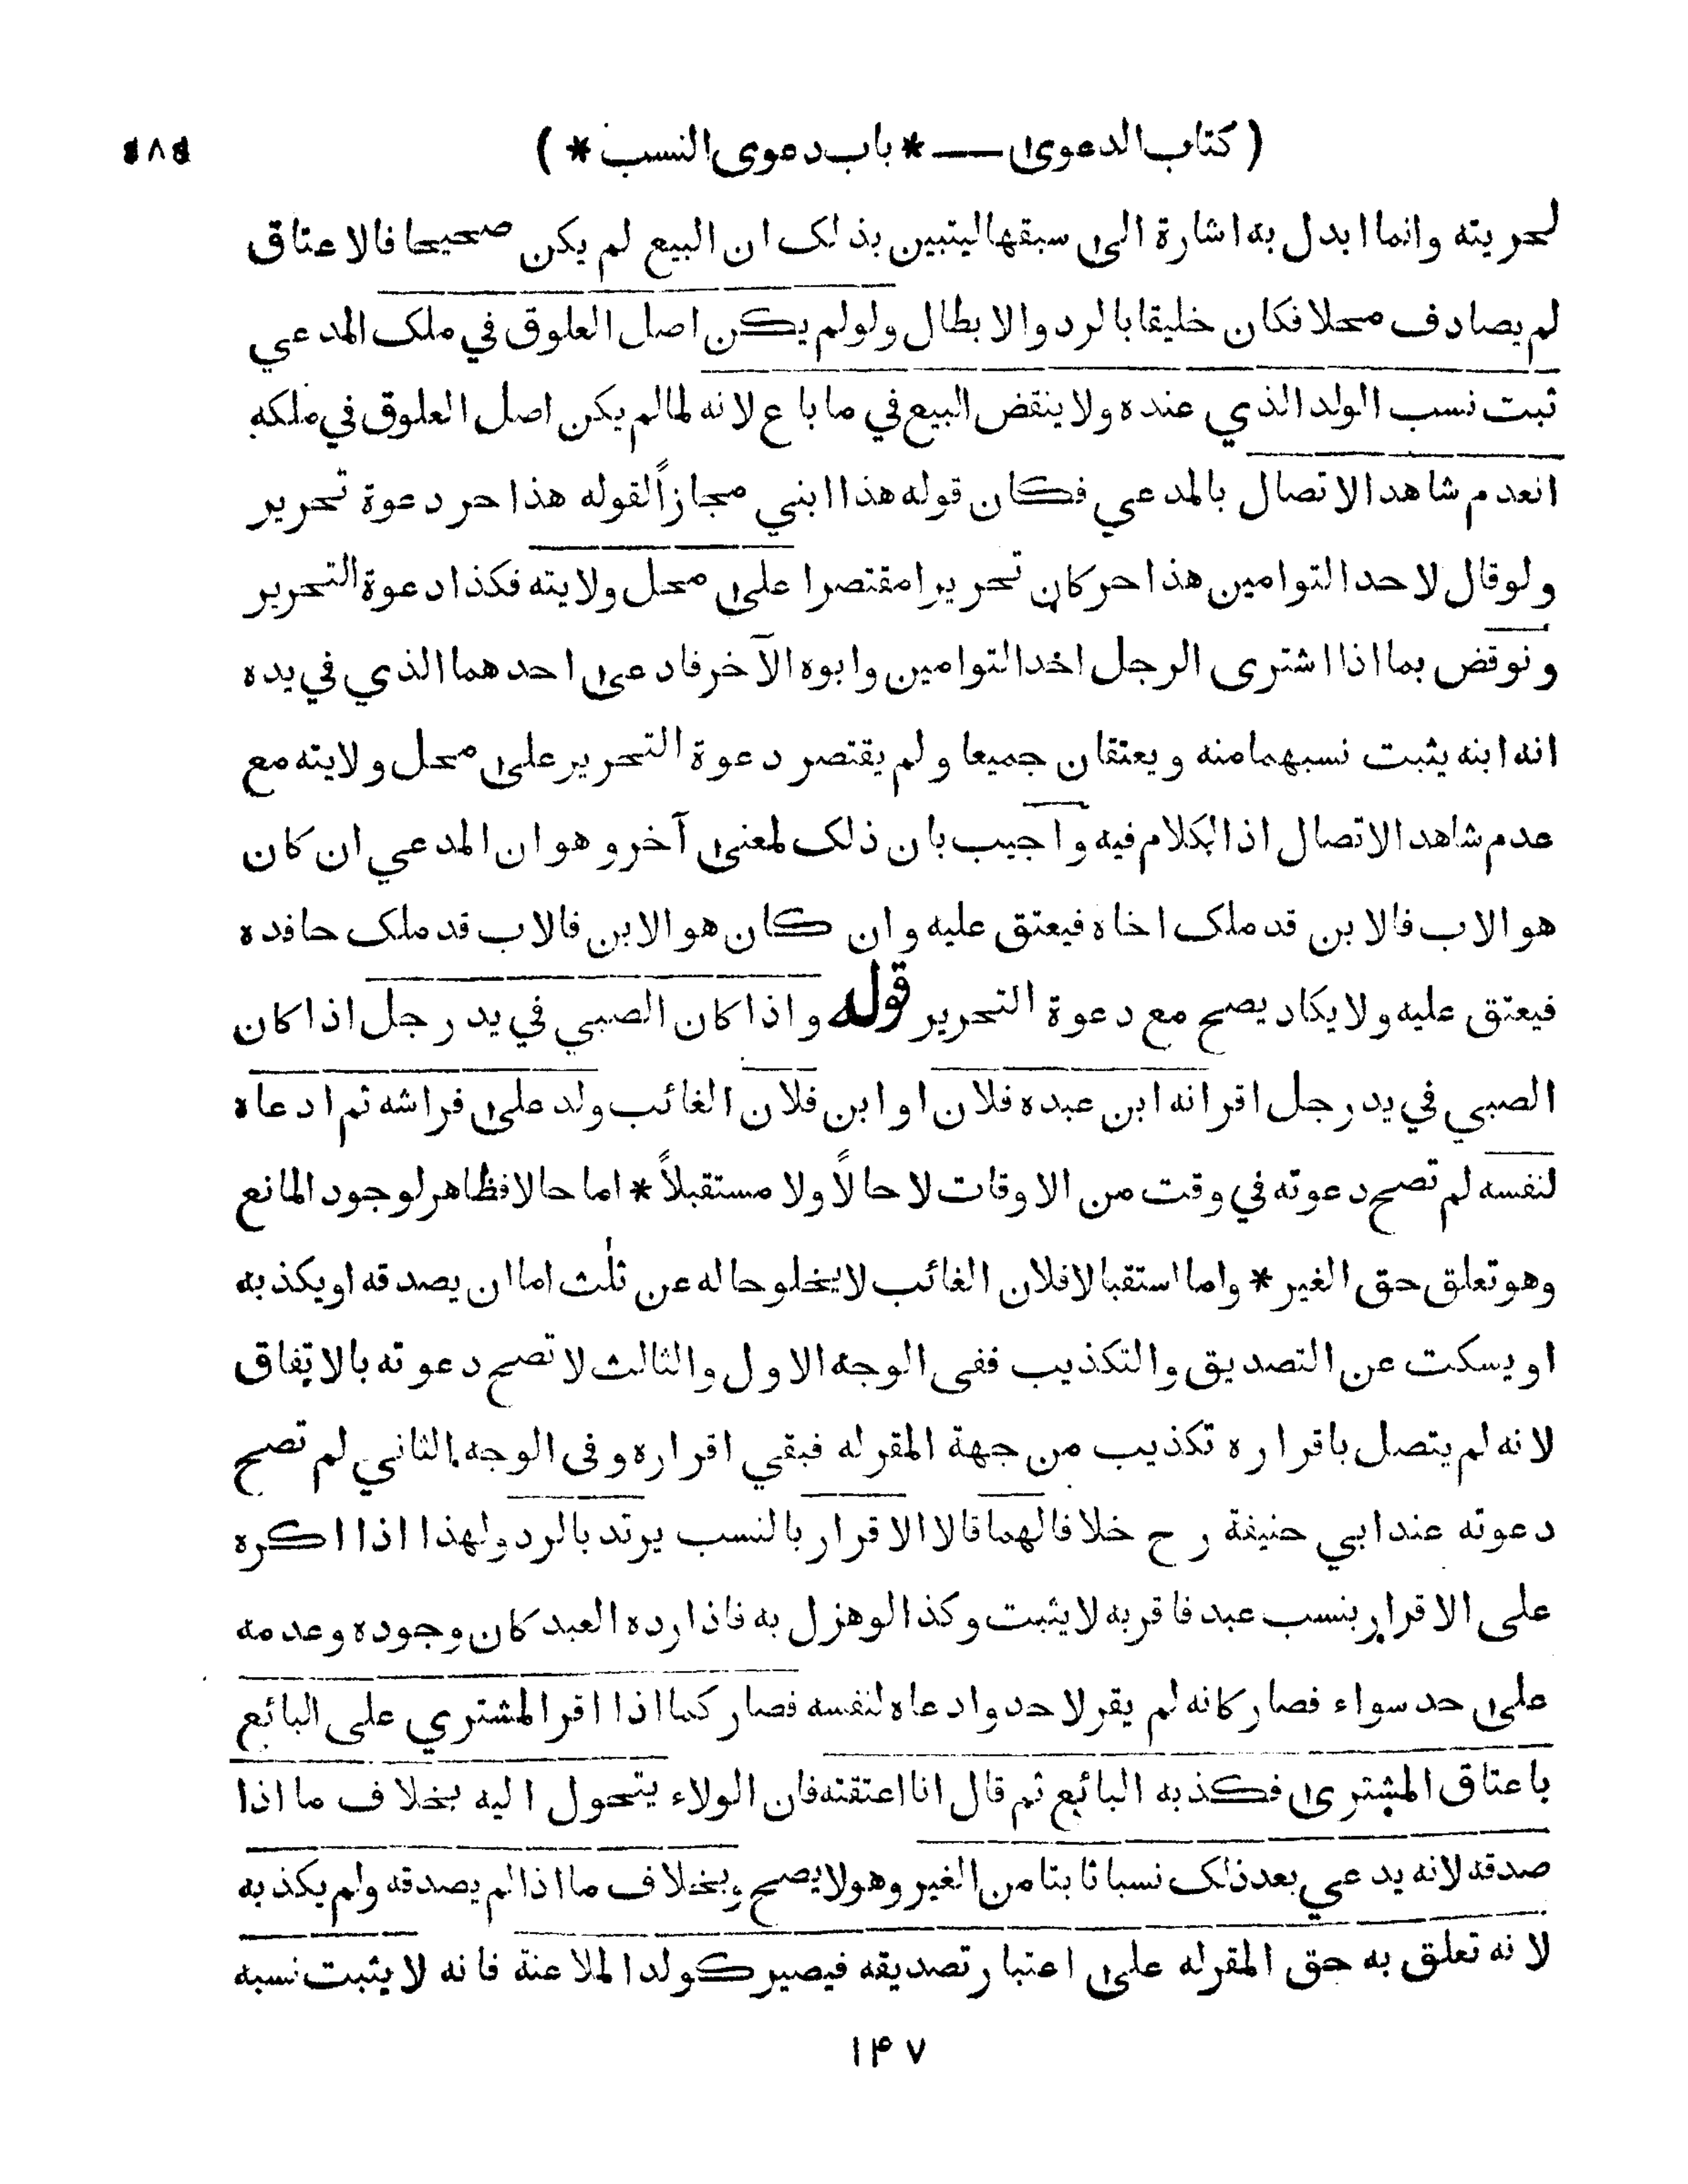 ( كتاب الدعوى — * باب دعوى النسب * )
لحريته وانما ابدل به اشارة الى سبقها ليتبين بذلك ان البيع لم يكن صحيحا فالاعتاق
لم يصادف محلا فكان خليقا بالرد والابطال ولولم يكن اصل العلوق في ملك المدعي
ثبت نسب الولد الذي عنده ولا ينقض البيع في ما باع لانه لما لم يكن اصل العلوق في ملكه
انعدم شاهد الاتصال بالمدعي فكان قوله هذا ابني مجازاً لقوله هذا حر دعوة تحرير
ولوقال لاحد التوامين هذا حر كان تحريرا مقتصرا على محل ولايته فكذا دعوة التحرير
ونوقض بما اذا اشترى الرجل احد التوامين وابوه الآخر فادعى احدهما الذي في يده
انه ابنه يثبت نسبهما منه ويعتقان جميعا ولم يقتصر دعوة التحرير على محل ولايته مع
عدم شاهد الاتصال اذ الكلام فيه واجيب بان ذلك لمعنى آخر وهو ان المدعي ان كان
هو الاب فالابن قد ملك اخاه فيعتق عليه وان كان هو الابن فالاب قد ملك حافده
فيعتق عليه ولا يكاد يصح مع دعوة التحرير قوله واذا كان الصبي في يد رجل اذا كان
الصبي في يد رجل اقر انه ابن عبده فلان او ابن فلان الغائب ولد على فراشه ثم ادعاه
لنفسه لم تصح دعوته في وقت من الاوقات لا حالاً ولا مستقبلاً * اما حالا فظاهر لوجود المانع
وهو تعلق حق الغير * واما استقبالا فلان الغائب لا يخلو حاله عن ثلٰث اما ان يصدقه او يكذبه
او يسكت عن التصديق والتكذيب ففى الوجه الاول والثالث لا تصح دعوته بالاتفاق
لانه لم يتصل باقراره تكذيب من جهة المقرله فبقي اقراره وفى الوجه الثاني لم تصح
دعوته عند ابي حنيفة رح خلافا لهما قالا الاقرار بالنسب يرتد بالرد ولهذا اذا اكره
على الاقرار بنسب عبد فاقر به لا يثبت وكذا لوهزل به فاذا رده العبد كان وجوده وعدمه
على حد سواء فصار كانه لم يقر لاحد وادعاه لنفسه فصار كما اذا اقر المشتري على البائع
باعتاق المشترى فكذبه البائع ثم قال انا اعتقته فان الولاء يتحول اليه بخلاف ما اذا
صدقه لانه يدعي بعد ذلك نسبا ثابتا من الغير وهو لا يصح وبخلاف ما اذا لم يصدقه ولم يكذبه
لانه تعلق به حق المقرله على اعتبار تصديقه فيصير كولد الملاعنة فانه لا يثبت نسبه
۱۴۷